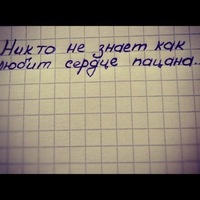 Никто не знает как
любит сердце пацана..